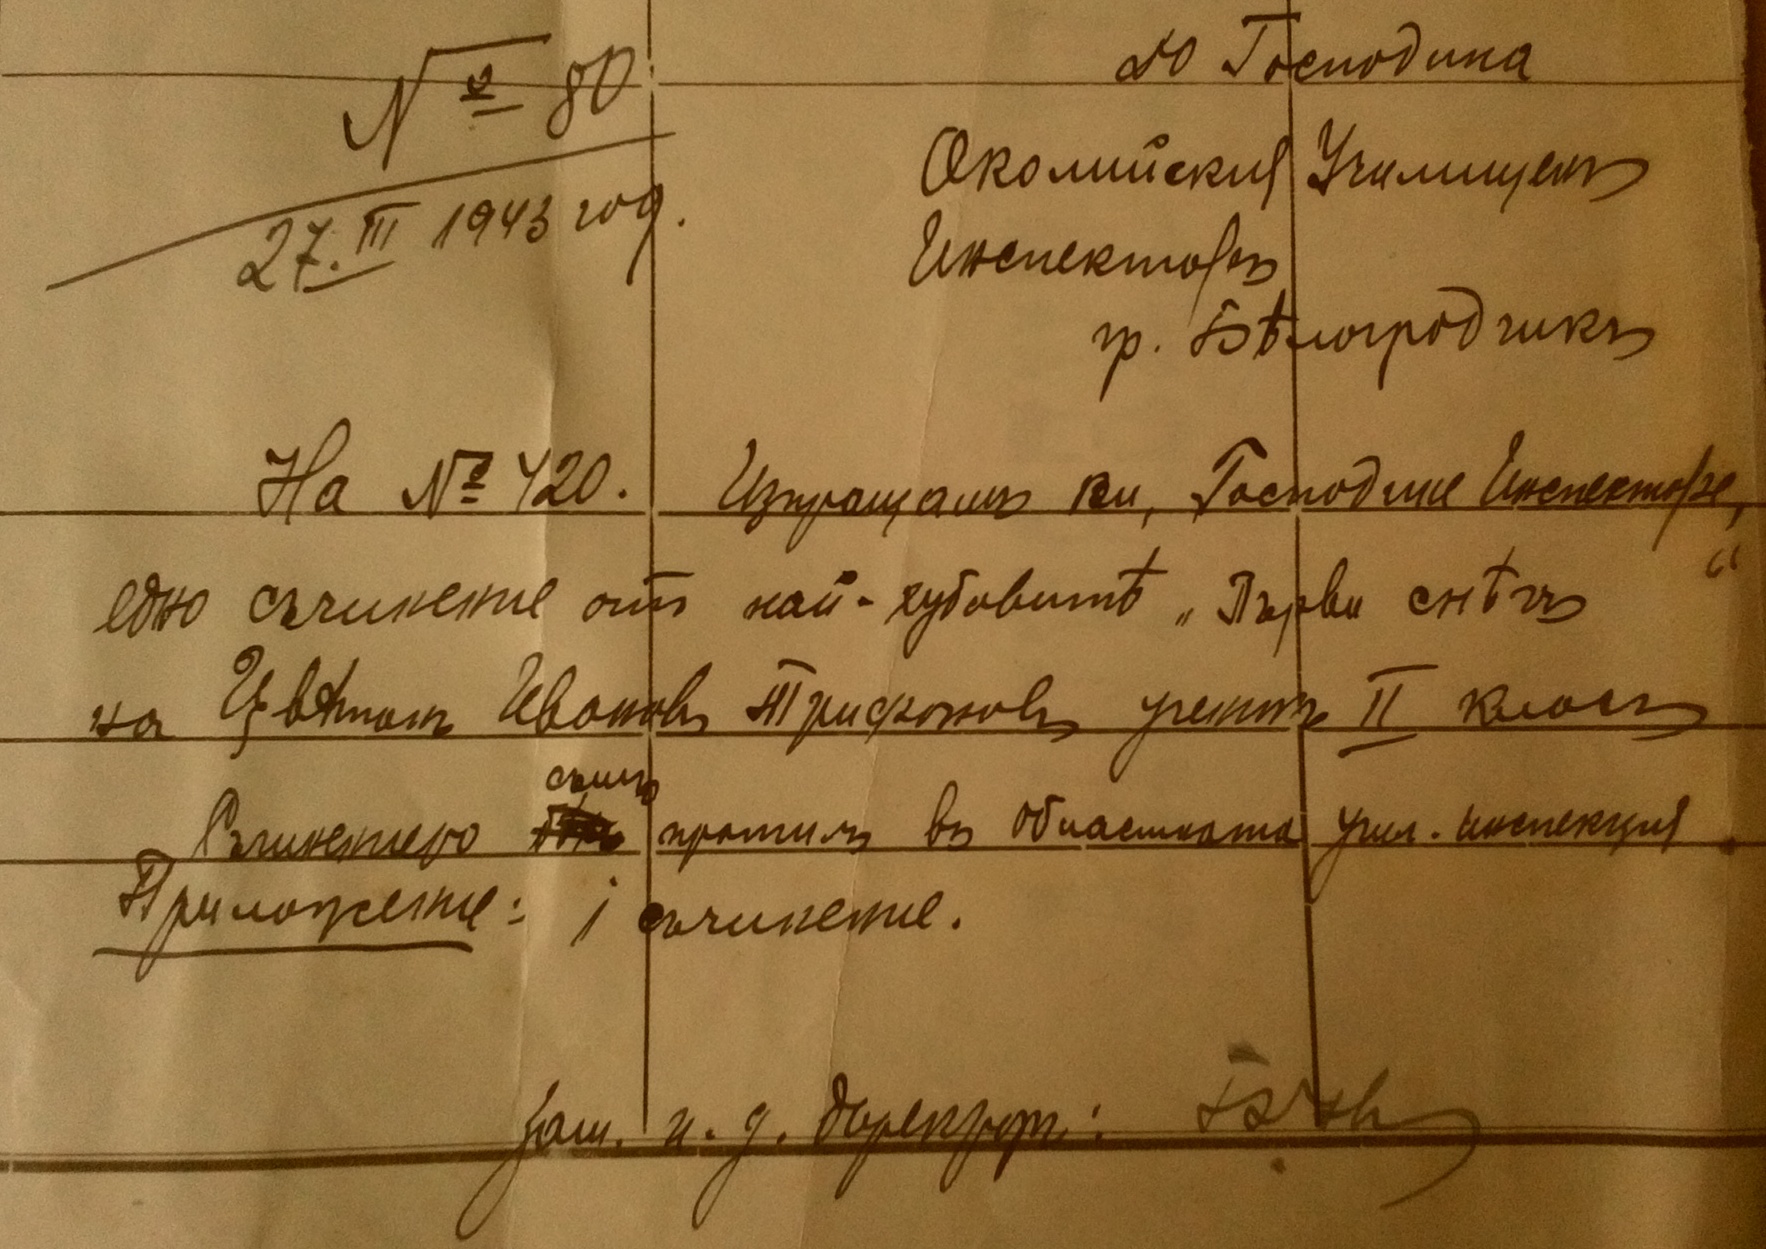 № 80
27.III 1943 год.
До Господина
Околийския Училищенъ
Инспекторъ
гр. Бѣлоградчикъ
На № 420. Изпращамъ Ви, Господине Инспекторе,
едно съчинение отъ най-хубавитѣ „Първи снѣгъ“
на Цвѣтанъ Ивановъ Трифоновъ ученикъ II класъ
съмъ
Съчинението пратилъ въ областната учил. инспекция
Приложение: 1 съчинение.
зам. и. д. Директоръ: